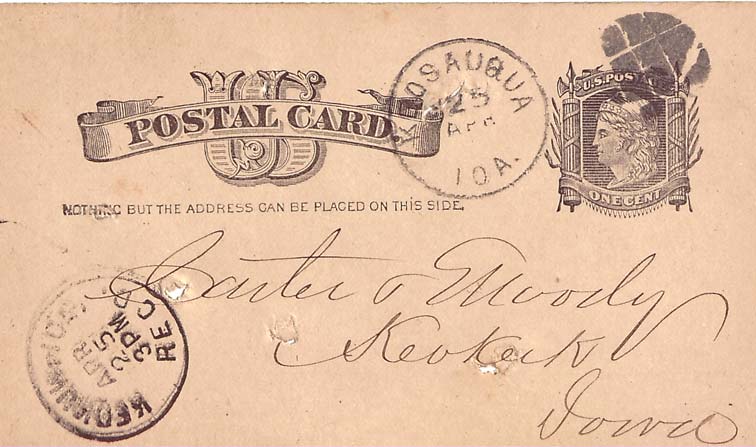 US
POSTAL CARD
KEOSAUQUA
25
APR
IOA.
U.S. POSTAGE
ONE CENT
NOTHING BUT THE ADDRESS CAN BE PLACED ON THIS SIDE.
Carter & Moody
Keokuk
Iowa
REC'D
APR
25
3 PM